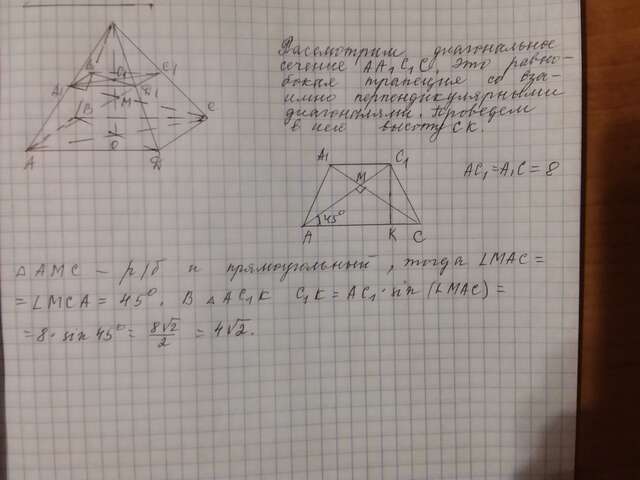 Рассмотрим диагональное
сечение AA₁C₁C. Это равно-
бокая трапеция со вза-
имно перпендикулярными
диагоналями. Проведем
в нею высоту CK.
A₁ B₁ C₁
O₁
M D₁
B C
A O D
A₁ C₁
M
45°
A K C
AC₁=A₁C=8
△ AMC – р/б и прямоугольный, тогда ∠MAC=
=∠MCA = 45°. В △ AC₁K C₁K = AC₁·sin(∠MAC)=
=8·sin 45°= 8√2/2 = 4√2.